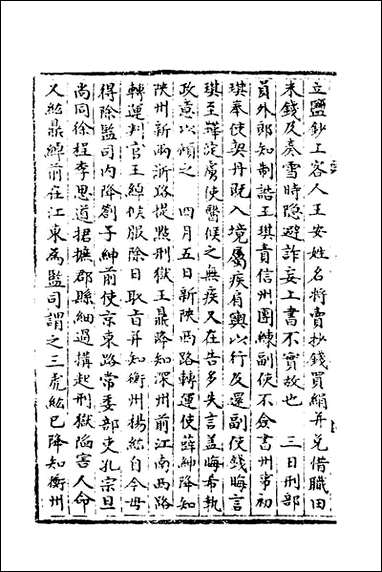 立鹽鈔上客人王安姓名將賣抄錢買絹并兌借職田
米錢及奏雪時隱避詐妄上書不實故也　三日刑部
員外郎知制誥王琪責信州團練副使不僉書州事初
琪奉使契丹既入境屬疾肩輿以行及還副使錢晦言
琪至韡淀虜使醫候之無疾又在告多失言蓋晦希執
政意以傾之　四月五日新陝西路轉運使薛紳降知
陝州新兩浙路提點刑獄王鼎降知深州前江南西路
轉運判官王綽候服除日取旨并知衡州楊紘自今毋
得除監司内降劄子紳前使京東路常委部吏孔宗旦
尚同徐程李思道捃摭郡縣細過搆起刑獄陷害人命
又紘鼎綽前在江東為監司謂之三虎紘已降知衡州